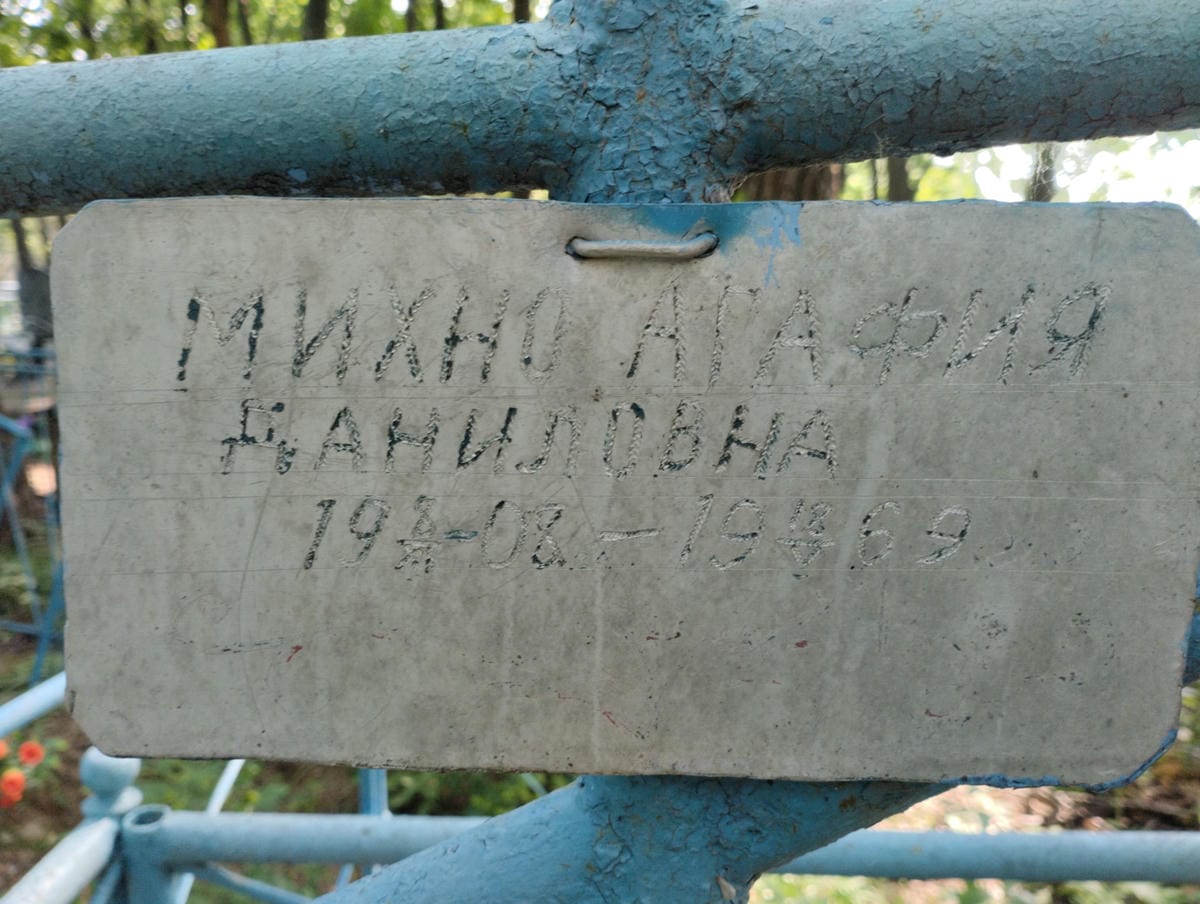 МИХНО АГАФИЯ
ДАНИЛОВНА
19 8/II-08 — 19 18/V 69